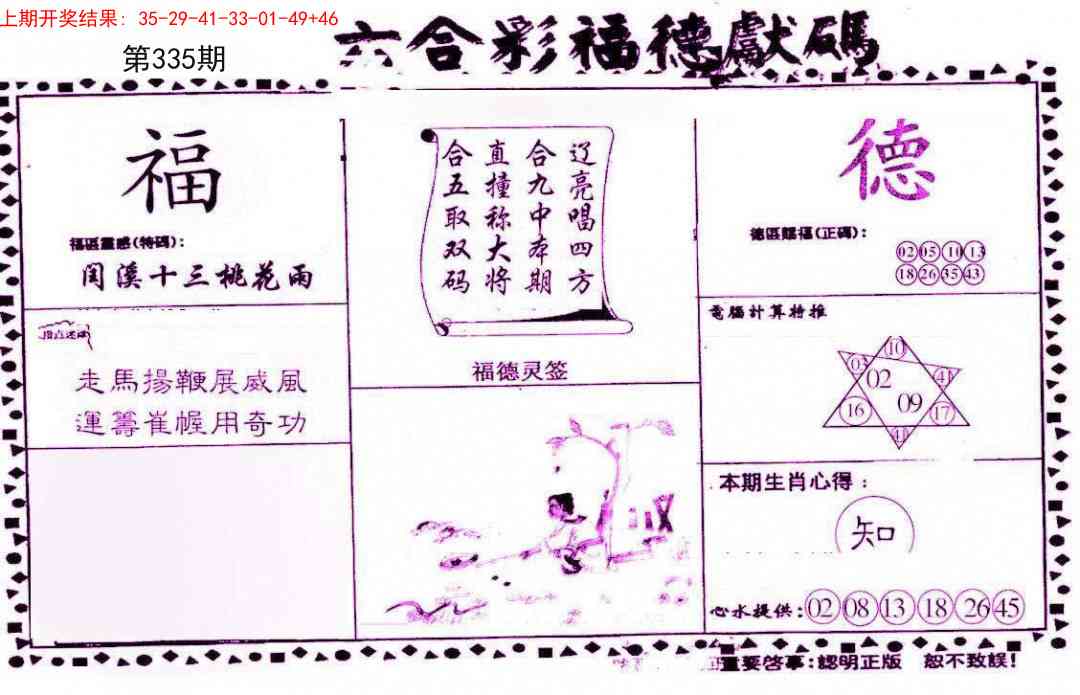 上期开奖结果：35-29-41-33-01-49+46
六合彩福德獻碼
第335期
福
福區靈感(特碼)：
閏溪十三桃花雨
走馬揚鞭展威風
運籌崔幄用奇功
辽亮唱四方
合九中本期
直撞称大将
合五取双码
福德灵签
德
德區賜福(正碼)：
02 05 10 13
18 26 35 43
電腦計算特推
10
03 02 41
16 09 17
41
本期生肖心得：
知
心水提供：02 08 13 18 26 45
重要啓事：認明正版 恕不致誤！